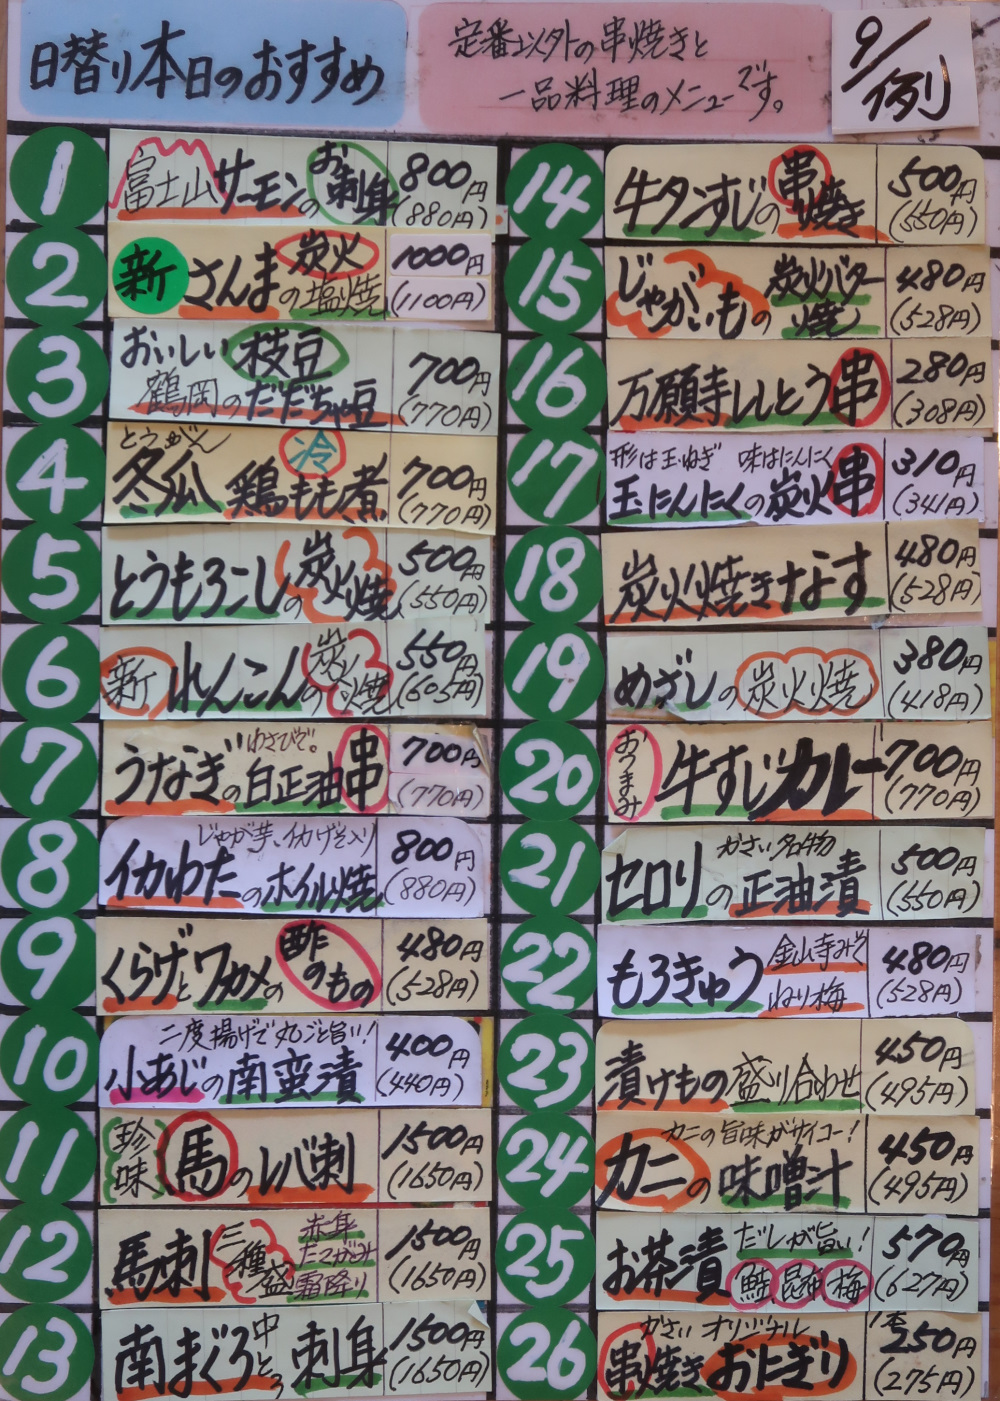 日替り本日のおすすめ
定番以外の串焼きと
一品料理のメニューです。
9/例
1
富士山サーモンのお刺身
800円
(880円)
2
新 さんまの炭火塩焼
1000円
(1100円)
3
おいしい枝豆
鶴岡のだだちゃ豆
700円
(770円)
4
とうがん
冬瓜 鶏もも煮 冷
700円
(770円)
5
とうもろこしの炭火焼
500円
(550円)
6
新 れんこんの炭火焼
550円
(605円)
7
わさびで。
うなぎの白正油串
700円
(770円)
8
じゃが芋、イカげそ入り
イカわたのホイル焼
800円
(880円)
9
くらげとワカメの酢のもの
480円
(528円)
10
二度揚げで丸ごと旨い!
小あじの南蛮漬
400円
(440円)
11
珍味 馬のレバ刺
1500円
(1650円)
12
馬刺三種盛
赤身
たてがみ
霜降り
1500円
(1650円)
13
南まぐろ中とろ刺身
1500円
(1650円)
14
牛タンすじの串焼き
500円
(550円)
15
じゃがいもの炭火バター焼
480円
(528円)
16
万願寺ししとう串
280円
(308円)
17
形は玉ねぎ 味はにんにく
玉にんにくの炭火串
310円
(341円)
18
炭火焼きなす
480円
(528円)
19
めざしの炭火焼
380円
(418円)
20
おつまみ 牛すじカレー
700円
(770円)
21
かさい名物
セロリの正油漬
500円
(550円)
22
もろきゅう
金山寺みそ
ねり梅
480円
(528円)
23
漬けもの盛り合わせ
450円
(495円)
24
カニの旨味がサイコー!
カニの味噌汁
450円
(495円)
25
だしが旨い!
お茶漬 鮭 昆布 梅
570円
(627円)
26
かさいオリジナル
串焼きおにぎり
1本
250円
(275円)